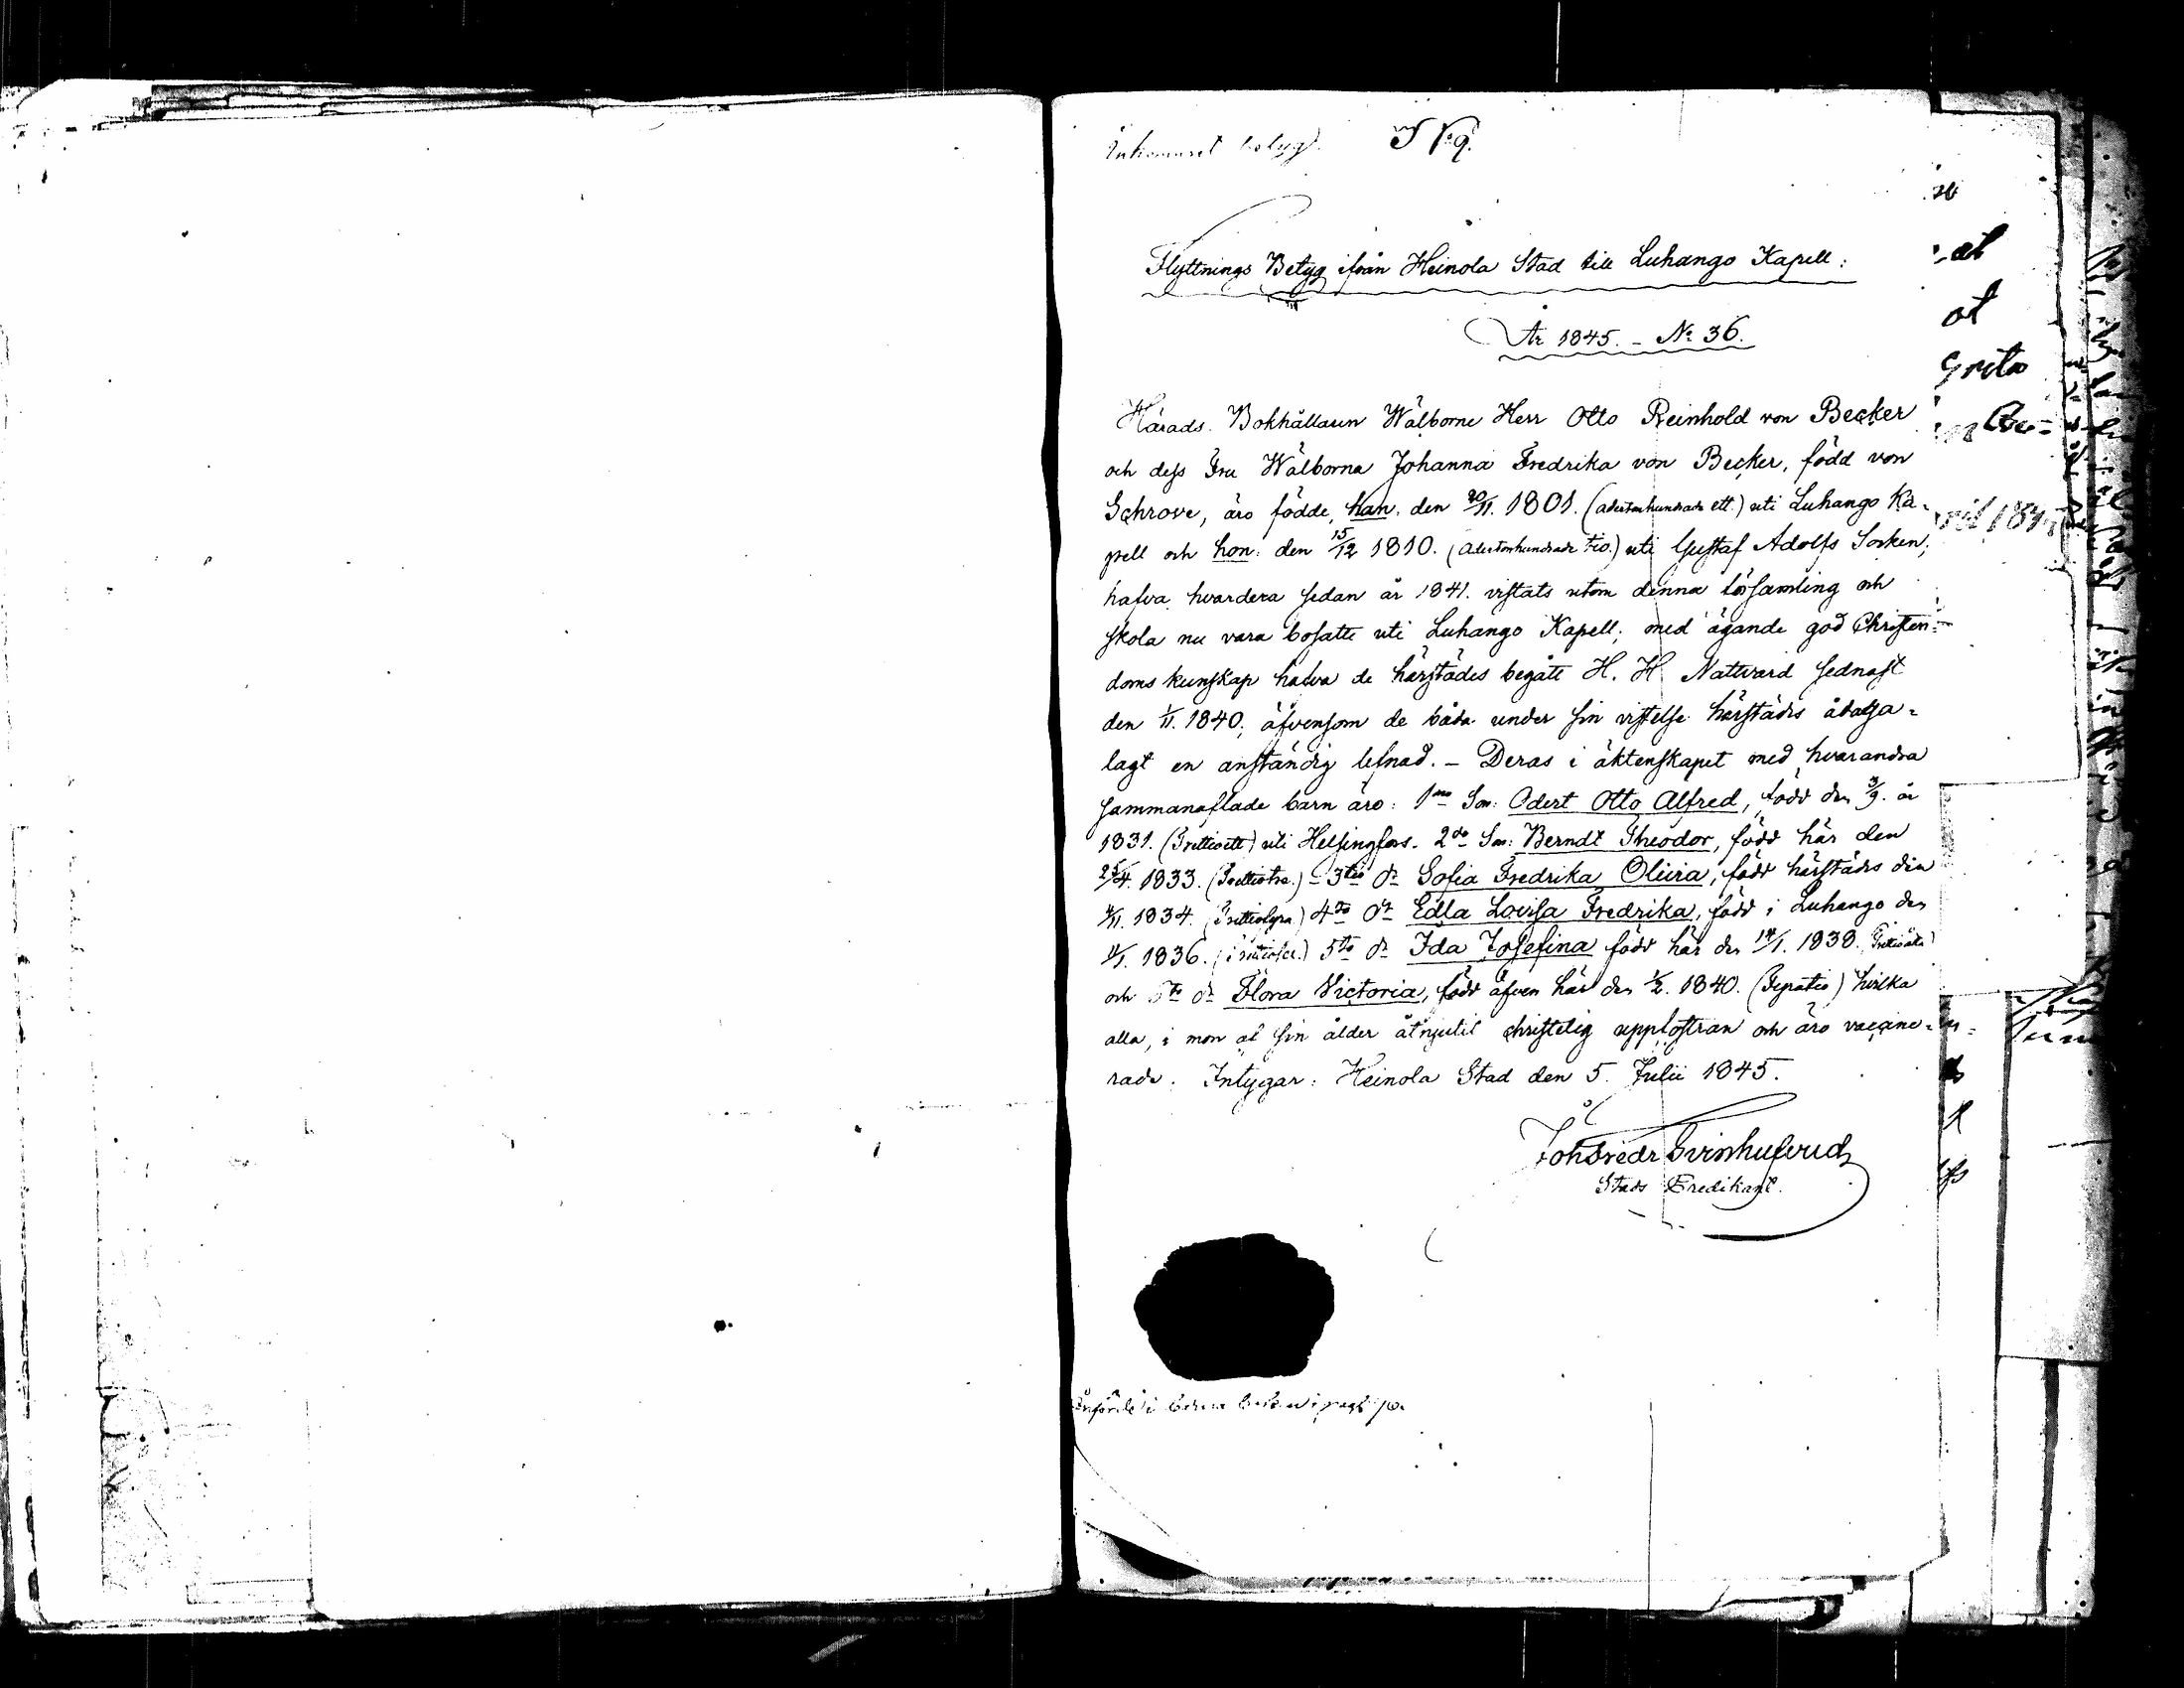 Inkommet betyg. No 9.
Flyttnings Betyg ifrån Heinola Stad till Luhango Kapell:
År 1845. - No 36.
Härads Bokhållaren Wälborne Herr Otto Reinhold von Becker
och dess Fru Wälborna Johanna Fredrika von Becker, född von
Schrove, äro födde, han. den 20/11. 1801. (adertonhundrade ett.) uti Luhango Ka-
pell och hon: den 15/12 1810. (adertonhundrade tio.) uti Gustaf Adolfs Socken;
hafva hvardera sedan år 1841. vistats utom denna församling och
skola nu vara bosatte uti Luhango Kapell; med ägande god Christen-
doms kunskap hafva de härstädes begått H. H. Nattvard sednast
den 1/11. 1840; äfvensom de båda under sin vistelse härstädes ådaga-
lagt en anständig lefnad. - Deras i äktenskapet med hvarandra
sammanaflade barn äro: 1mo Son: Odert Otto Alfred, född den 3/9. år
1831. (Trettioett) uti Helsingfors. 2do Son: Berndt Theodor, född här den
25/4. 1833. (Trettiotre.) - 3tio dr Sofia Fredrika Olivia, född härstädes den
/11. 1834. (Trettiofyra) 4to dr Edla Lovisa Fredrika, född i Luhango den
/1. 1836. (Trettiosex.) 5to dr Ida Josefina född här den 14/1. 1838. (Trettioåtta)
och 6to dr Flora Victoria, född äfven här den 1/2. 1840. (Fyratio) hvilka
alla, i mon af sin ålder åtnjutit christelig uppfostran och äro vaccine-
rade. Intygar: Heinola Stad den 5. Julii 1845.
Joh Fredr Svinhufvud
Stads Predikant.
Införde i barna boken pag
at
at
Greta